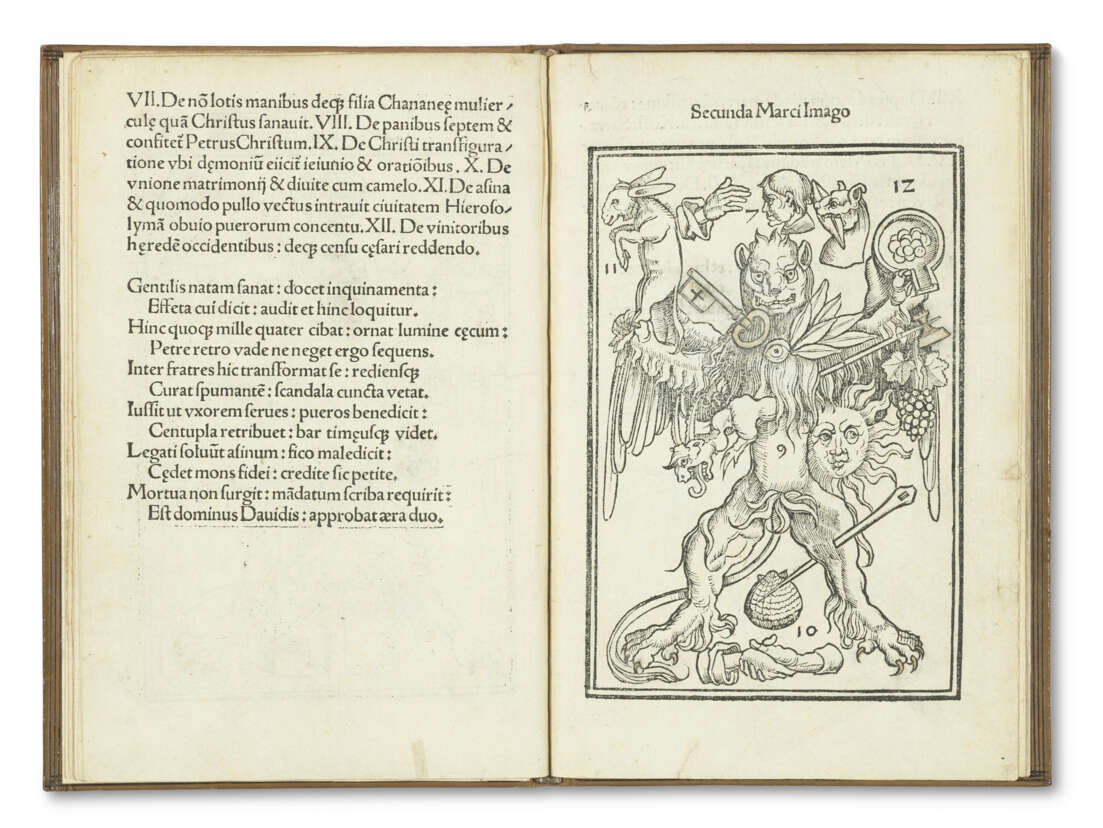 VII.De nō lotis manibus deqꝫ filia Chananeę mulier⸗
culę quā Christus sanauit. VIII. De panibus septem &
confitet̄ Petrus Christum. IX. De Christi transfigura
tione vbi dęmoniū eiicit ieiunio & oratiōibus. X. De
vnione matrimonij & diuite cum camelo. XI. De asina
& quomodo pullo vectus intrauit ciuitatem Hieroso⸗
lymā obuio puerorum concentu. XII. De vinitoribus
hęredē occidentibus: deqꝫ censu cęsari reddendo.
Gentilis natam sanat: docet inquinamenta:
Effeta cui dicit: audit et hinc loquitur.
Hinc quoqꝫ mille quater cibat: ornat lumine cęcum:
Petre retro vade ne neget ergo sequens.
Inter fratres hic transformat se: rediensqꝫ
Curat spumantē: scandala cuncta vetat.
Iussit ut vxorem serues: pueros benedicit:
Centupla retribuet: bar timęusqꝫ videt.
Legati soluūt asinum: fico maledicit:
Cędet mons fidei: credite sic petite.
Mortua non surgit: mādatum scriba requirit:
Est dominus Dauidis: approbat æra duo.
Secunda Marci Imago
12
7
11
9
10